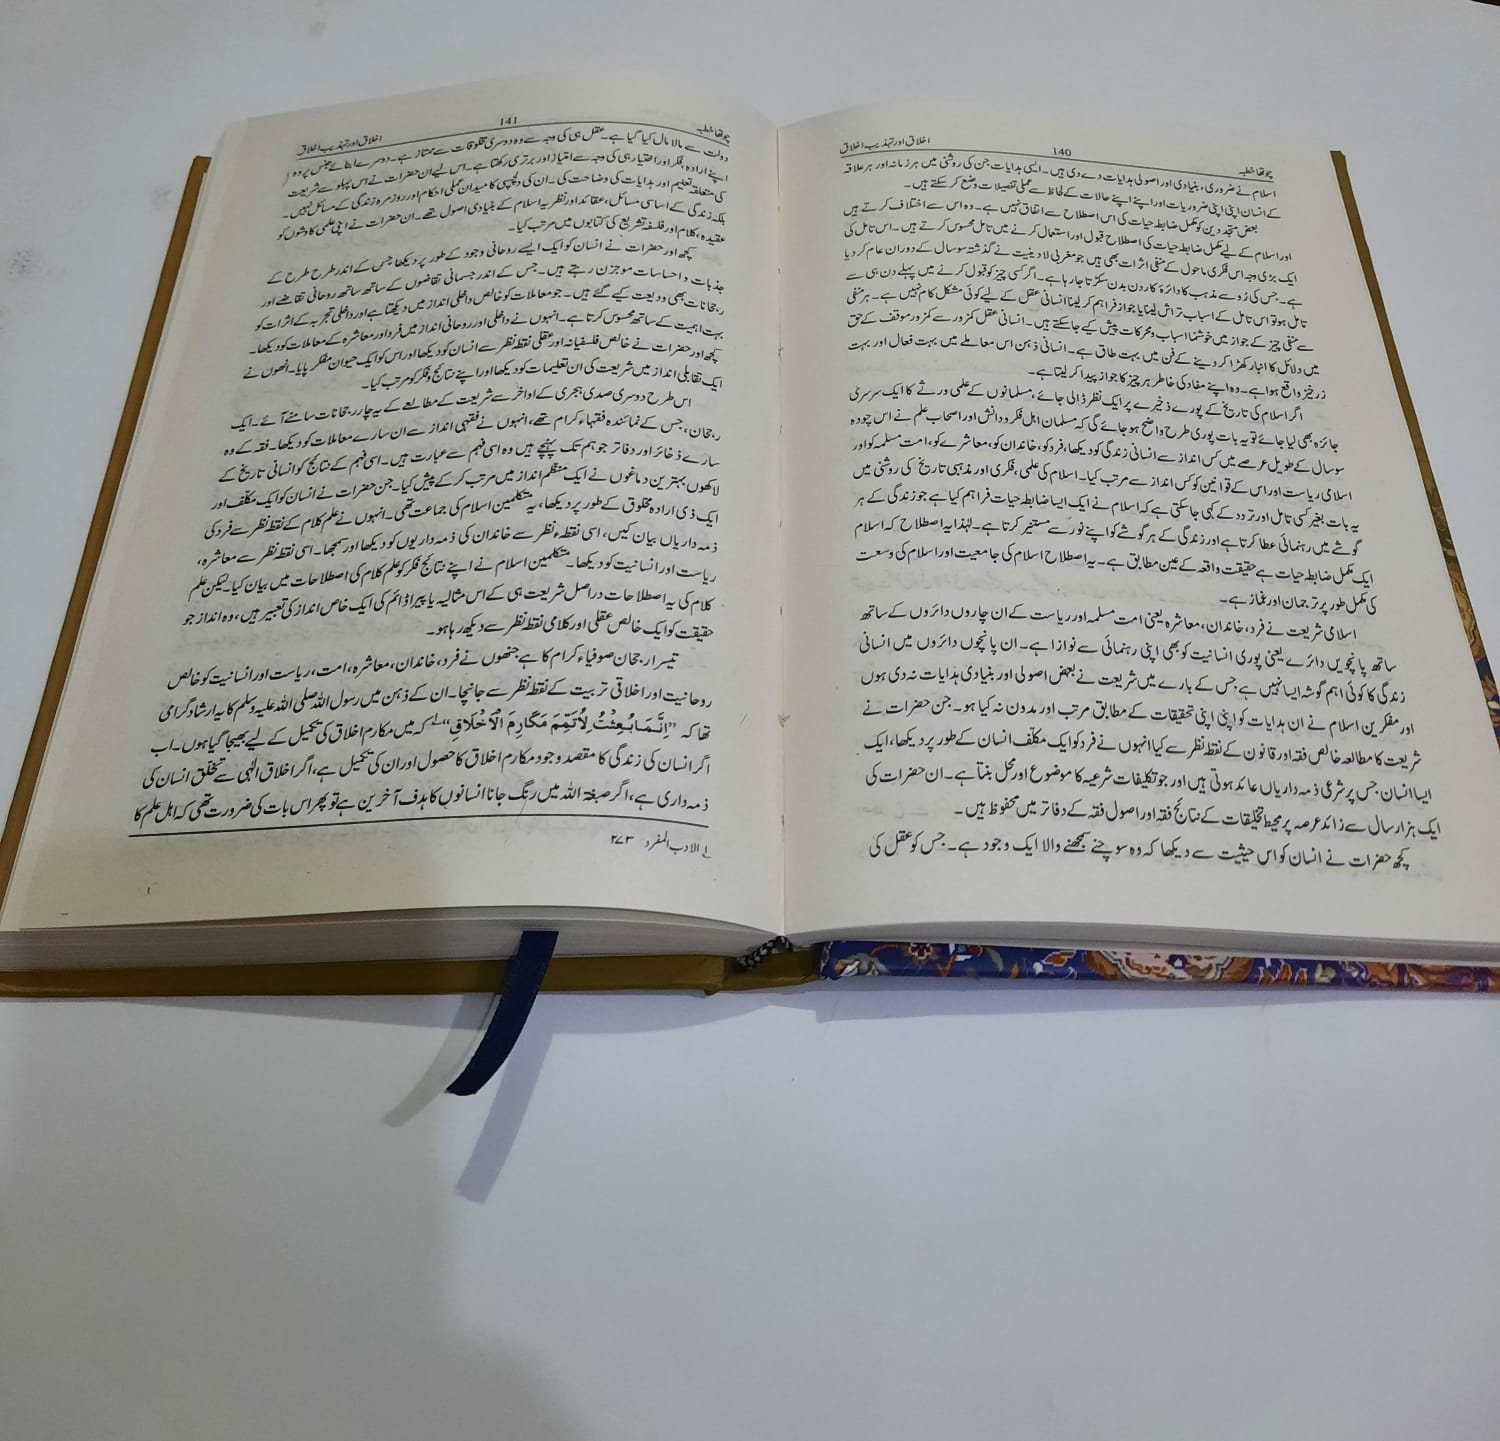 چوتھا خطبہ
140
اخلاق اور تہذیب اخلاق
اسلام نے ضروری، بنیادی اور اصولی ہدایات دے دی ہیں۔ ایسی ہدایات جن کی روشنی میں ہر زمانہ اور ہر علاقہ
کے انسان اپنی اپنی ضروریات اور اپنے اپنے حالات کے لحاظ سے عملی تفصیلات وضع کر سکتے ہیں۔
بعض متجددین کو مکمل ضابطہ حیات کی اس اصطلاح سے اتفاق نہیں ہے۔ وہ اس سے اختلاف کرتے ہیں
اور اسلام کے لیے مکمل ضابطہ حیات کی اصطلاح قبول اور استعمال کرنے میں تامل محسوس کرتے ہیں۔ اس تامل کی
ایک بڑی وجہ اس فکری ماحول کے منفی اثرات بھی ہیں جو مغربی لا دینیت نے گذشتہ سو سال کے دوران عام کر دیا
ہے۔ جس کی رُو سے مذہب کا دائرۂ کار دن بدن سکڑتا جا رہا ہے۔ اگر کسی چیز کو قبول کرنے میں پہلے دن ہی سے
تامل ہو تو اس تامل کے اسباب تراش لینا یا جواز فراہم کر لینا انسانی عقل کے لیے کوئی مشکل کام نہیں ہے۔ ہر منفی
سے منفی چیز کے جواز میں خوشنما اسباب و محرکات پیش کیے جا سکتے ہیں۔ انسانی عقل کمزور سے کمزور موقف کے حق
میں دلائل کا انبار کھڑا کر دینے کے فن میں بہت طاق ہے۔ انسانی ذہن اس معاملے میں بہت فعال اور بہت
زرخیز واقع ہوا ہے۔ وہ اپنے مفاد کی خاطر ہر چیز کا جواز پیدا کر لیتا ہے۔
اگر اسلام کی تاریخ کے پورے ذخیرے پر ایک نظر ڈالی جائے، مسلمانوں کے علمی ورثے کا ایک سرسری
جائزہ بھی لیا جائے تو یہ بات پوری طرح واضح ہو جائے گی کہ مسلمان اہل فکر و دانش اور اصحاب علم نے اس چودہ
سو سال کے طویل عرصے میں کس انداز سے انسانی زندگی کو دیکھا، فرد کو، خاندان کو، معاشرے کو، امت مسلمہ کو اور
اسلامی ریاست اور اس کے قوانین کو کس انداز سے مرتب کیا۔ اسلام کی علمی، فکری اور مذہبی تاریخ کی روشنی میں
یہ بات بغیر کسی تامل اور تردد کے کہی جا سکتی ہے کہ اسلام نے ایک ایسا ضابطہ حیات فراہم کیا ہے جو زندگی کے ہر
گوشے میں رہنمائی عطا کرتا ہے اور زندگی کے ہر گوشے کو اپنے نور سے مستنیر کرتا ہے۔ لہٰذا یہ اصطلاح کہ اسلام
ایک مکمل ضابطہ حیات ہے حقیقت واقعہ کے عین مطابق ہے۔ یہ اصطلاح اسلام کی جامعیت اور اسلام کی وسعت
کی مکمل طور پر ترجمان اور غماز ہے۔
اسلامی شریعت نے فرد، خاندان، معاشرہ یعنی امت مسلمہ اور ریاست کے ان چاروں دائروں کے ساتھ
ساتھ پانچویں دائرے یعنی پوری انسانیت کو بھی اپنی رہنمائی سے نوازا ہے۔ ان پانچوں دائروں میں انسانی
زندگی کا کوئی اہم گوشہ ایسا نہیں ہے جس کے بارے میں شریعت نے بعض اصولی اور بنیادی ہدایات نہ دی ہوں
اور مفکرین اسلام نے ان ہدایات کو اپنی اپنی تحقیقات کے مطابق مرتب اور مدون نہ کیا ہو۔ جن حضرات نے
شریعت کا مطالعہ خالص فقہ اور قانون کے نقطہ نظر سے کیا انہوں نے فرد کو ایک مکلّف انسان کے طور پر دیکھا، ایک
ایسا انسان جس پر شرعی ذمہ داریاں عائد ہوتی ہیں اور جو تکلیفات شرعیہ کا موضوع اور محل بنتا ہے۔ ان حضرات کی
ایک ہزار سال سے زائد عرصہ پر محیط تخلیقات کے نتائج فقہ اور اصول فقہ کے دفاتر میں محفوظ ہیں۔
کچھ حضرات نے انسان کو اس حیثیت سے دیکھا کہ وہ سوچنے سمجھنے والا ایک وجود ہے۔ جس کو عقل کی
چوتھا خطبہ
141
اخلاق اور تہذیب اخلاق
دولت سے مالا مال کیا گیا ہے۔ عقل ہی کی وجہ سے وہ دوسری مخلوقات سے ممتاز ہے۔ دوسرے ابنائے جنس پر وہ
اپنے ارادہ، فکر اور اختیار ہی کی وجہ سے امتیاز اور برتری رکھتا ہے۔ اس لیے ان حضرات نے اس پہلو سے شریعت
کی متعلقہ تعلیم اور ہدایات کی وضاحت کی۔ ان کی دلچسپی کا میدان عملی احکام اور روزمرہ زندگی کے مسائل نہیں۔
بلکہ زندگی کے اساسی مسائل، عقائد اور نظریہ اسلام کے بنیادی اصول تھے۔ ان حضرات نے اپنی علمی کاوشوں کو
عقیدہ، کلام اور فلسفہ تشریع کی کتابوں میں مرتب کیا۔
کچھ اور حضرات نے انسان کو ایک ایسے روحانی وجود کے طور پر دیکھا جس کے اندر طرح طرح کے
جذبات و احساسات موجزن رہتے ہیں۔ جس کے اندر جسمانی تقاضوں کے ساتھ ساتھ روحانی تقاضے اور
رجحانات بھی ودیعت کیے گئے ہیں۔ جو معاملات کو خالص داخلی انداز میں دیکھتا ہے اور داخلی تجربہ کے اثرات کو
بہت اہمیت کے ساتھ محسوس کرتا ہے۔ انہوں نے داخلی اور روحانی انداز میں فرد اور معاشرہ کے معاملات کو دیکھا۔
کچھ اور حضرات نے خالص فلسفیانہ اور عقلی نقطہ نظر سے انسان کو دیکھا اور اس کو ایک حیوان مفکر پایا۔ انھوں نے
ایک تقابلی انداز میں شریعت کی ان تعلیمات کو دیکھا اور اپنے نتائج و فکر کو مرتب کیا۔
اس طرح دوسری صدی ہجری کے اواخر سے شریعت کے مطالعے کے یہ چار رجحانات سامنے آئے۔ ایک
رجحان، جس کے نمائندہ فقہاء کرام تھے، انہوں نے فقہی انداز سے ان سارے معاملات کو دیکھا۔ فقہ کے وہ
سارے ذخائر اور دفاتر جو ہم تک پہنچے ہیں وہ اسی فہم سے عبارت ہیں۔ اسی فہم کے نتائج کو انسانی تاریخ کے
لاکھوں بہترین دماغوں نے ایک منظم انداز میں مرتب کر کے پیش کیا۔ جن حضرات نے انسان کو ایک مکلّف اور
ایک ذی ارادہ مخلوق کے طور پر دیکھا، یہ متکلمین اسلام کی جماعت تھی۔ انہوں نے علم کلام کے نقطہ نظر سے فرد کی
ذمہ داریاں بیان کیں، اسی نقطہ نظر سے خاندان کی ذمہ داریوں کو دیکھا اور سمجھا۔ اسی نقطہ نظر سے معاشرہ،
ریاست اور انسانیت کو دیکھا۔ متکلمین اسلام نے اپنے نتائج فکر کو علم کلام کی اصطلاحات میں بیان کیا۔ لیکن علم
کلام کی یہ اصطلاحات دراصل شریعت ہی کے اس مثالیہ یا پیراڈائم کی ایک خاص انداز کی تعبیر ہیں، وہ انداز جو
حقیقت کو ایک خالص عقلی اور کلامی نقطہ نظر سے دیکھ رہا ہو۔
تیسرا رجحان صوفیاء کرام کا ہے جنھوں نے فرد، خاندان، معاشرہ، امت، ریاست اور انسانیت کو خالص
روحانیت اور اخلاقی تربیت کے نقطہ نظر سے جانچا۔ ان کے ذہن میں رسول اللہ صلی اللہ علیہ وسلم کا یہ ارشاد گرامی
تھا کہ ”اِنَّمَا بُعِثْتُ لِاُتَمِّمَ مَکَارِمَ الْاَخْلَاقِ“ کہ میں مکارم اخلاق کی تکمیل کے لیے بھیجا گیا ہوں۔ اب
اگر انسان کی زندگی کا مقصد وجود مکارم اخلاق کا حصول اور ان کی تکمیل ہے، اگر اخلاق الٰہی سے تخلق انسان کی
ذمہ داری ہے، اگر صبغۃ اللہ میں رنگ جانا انسانوں کا ہدف آخرین ہے تو پھر اس بات کی ضرورت تھی کہ اہل علم کا
الادب المفرد ۲۷۳